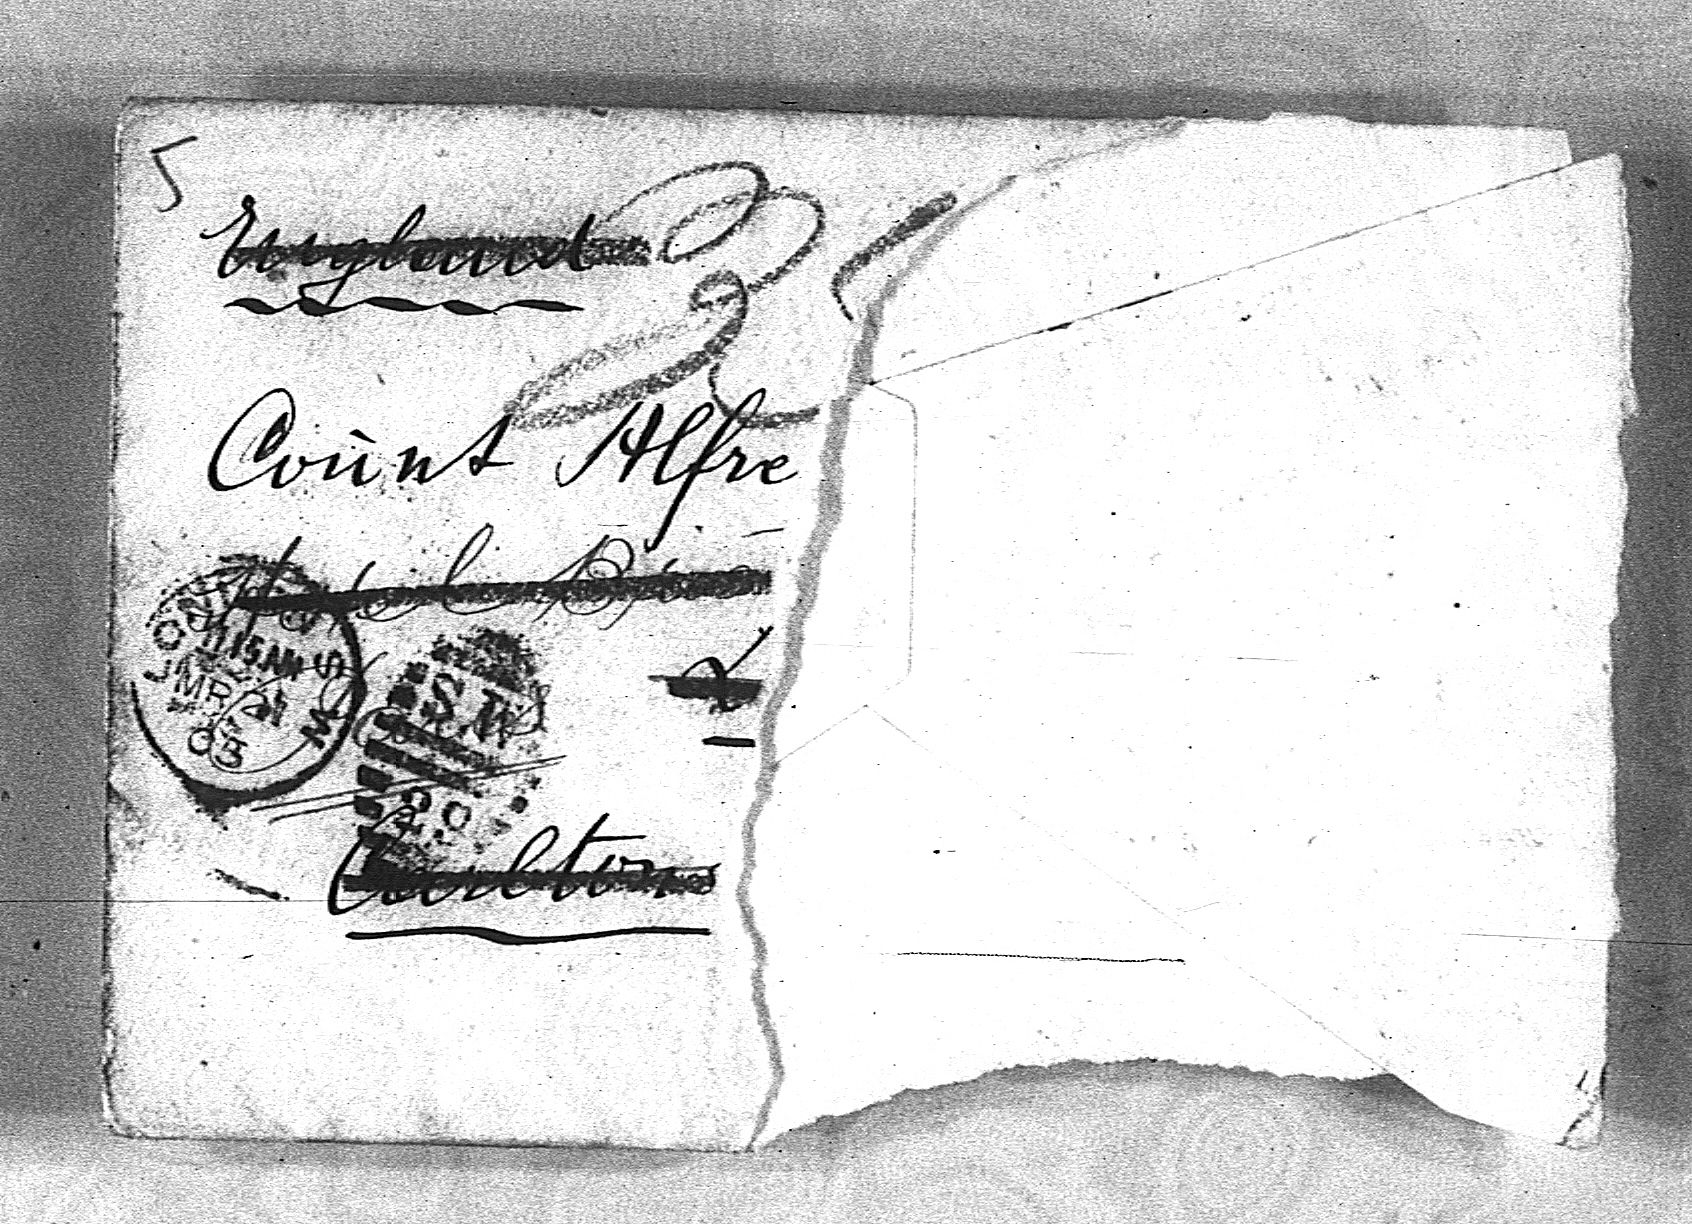 5
England
Count Alfre
Hotel
LONDON S.W
11.15 AM
MR 21
03
S.W
Carlton